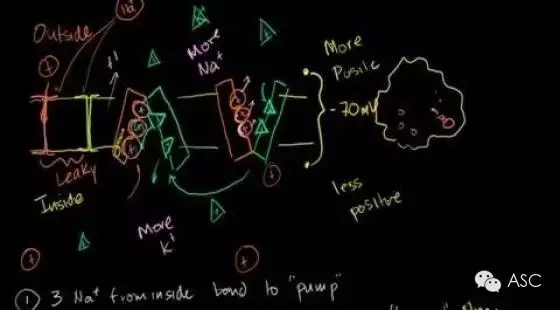 Outside
More
Na+
More
Positive
-70mV
Leaky
Inside
More
K+
less
positive
① 3 Na+ from inside bond to "pump"
ASC